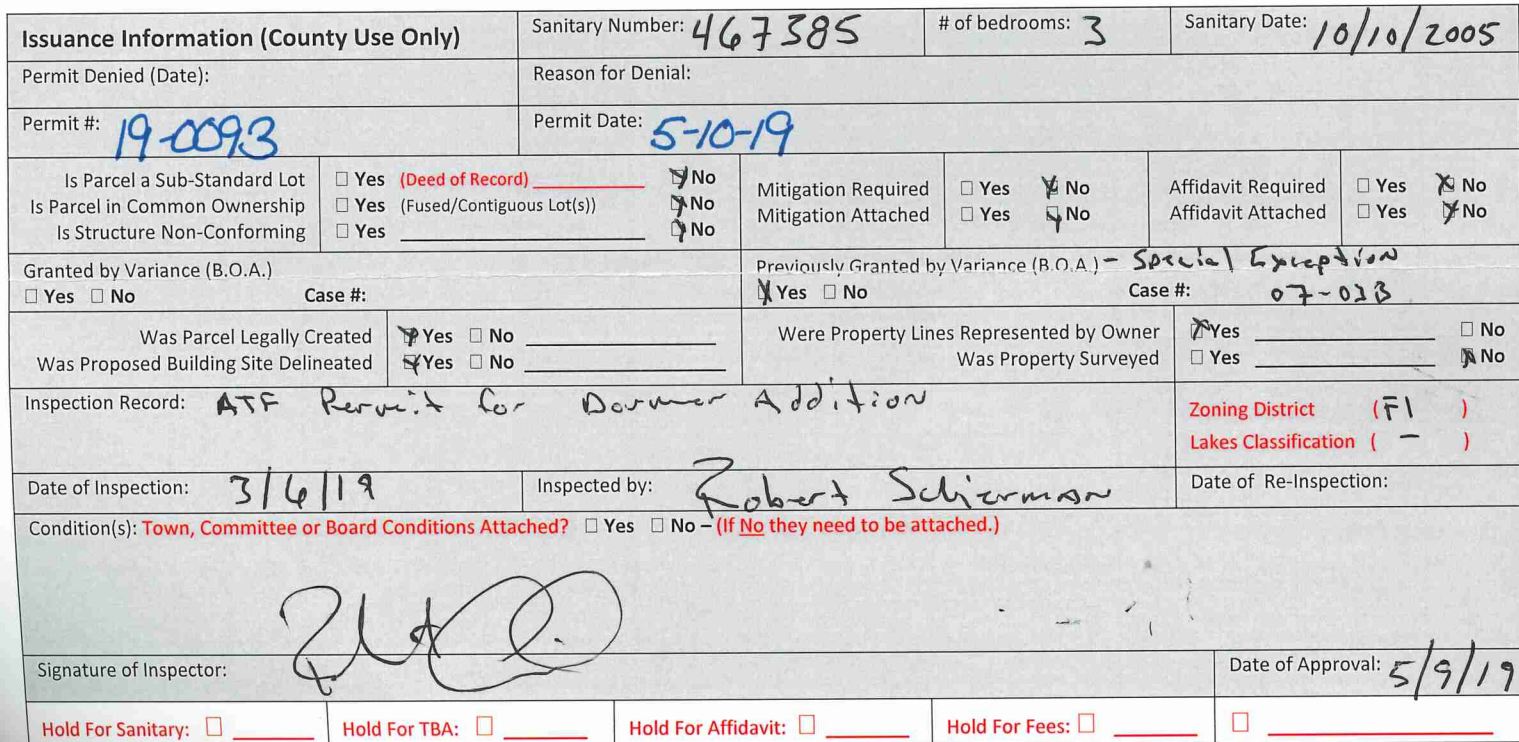 Issuance Information (County Use Only) Sanitary Number: 467385 # of bedrooms: 3 Sanitary Date: 10/10/2005
Permit Denied (Date): Reason for Denial:
Permit #: 19-0093 Permit Date: 5-10-19
Is Parcel a Sub-Standard Lot □ Yes (Deed of Record) ☒ No
Is Parcel in Common Ownership □ Yes (Fused/Contiguous Lot(s)) ☒ No
Is Structure Non-Conforming □ Yes ☒ No
Mitigation Required □ Yes ☒ No
Mitigation Attached □ Yes ☒ No
Affidavit Required □ Yes ☒ No
Affidavit Attached □ Yes ☒ No
Granted by Variance (B.O.A.)
□ Yes □ No Case #:
Previously Granted by Variance (B.O.A.) - Special Exception
☒ Yes □ No Case #: 07-03B
Was Parcel Legally Created ☒ Yes □ No
Was Proposed Building Site Delineated ☒ Yes □ No
Were Property Lines Represented by Owner ☒ Yes □ No
Was Property Surveyed □ Yes ☒ No
Inspection Record: ATF Permit for Dormer Addition
Zoning District (F1)
Lakes Classification ( - )
Date of Inspection: 3/6/19 Inspected by: Robert Schierman Date of Re-Inspection:
Condition(s): Town, Committee or Board Conditions Attached? □ Yes □ No – (If No they need to be attached.)
Signature of Inspector: Date of Approval: 5/9/19
Hold For Sanitary: □ Hold For TBA: □ Hold For Affidavit: □ Hold For Fees: □ □